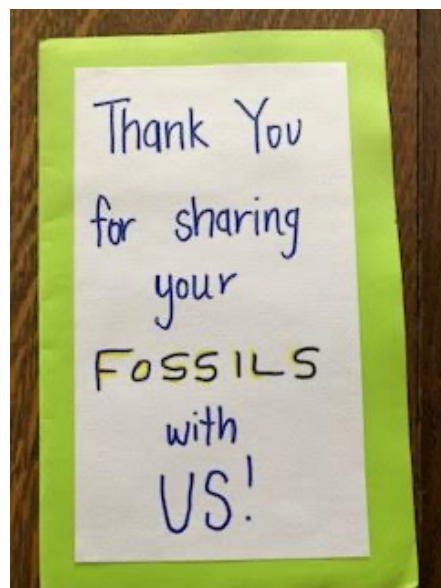 Thank You
for sharing
your
FOSSILS
with
US!